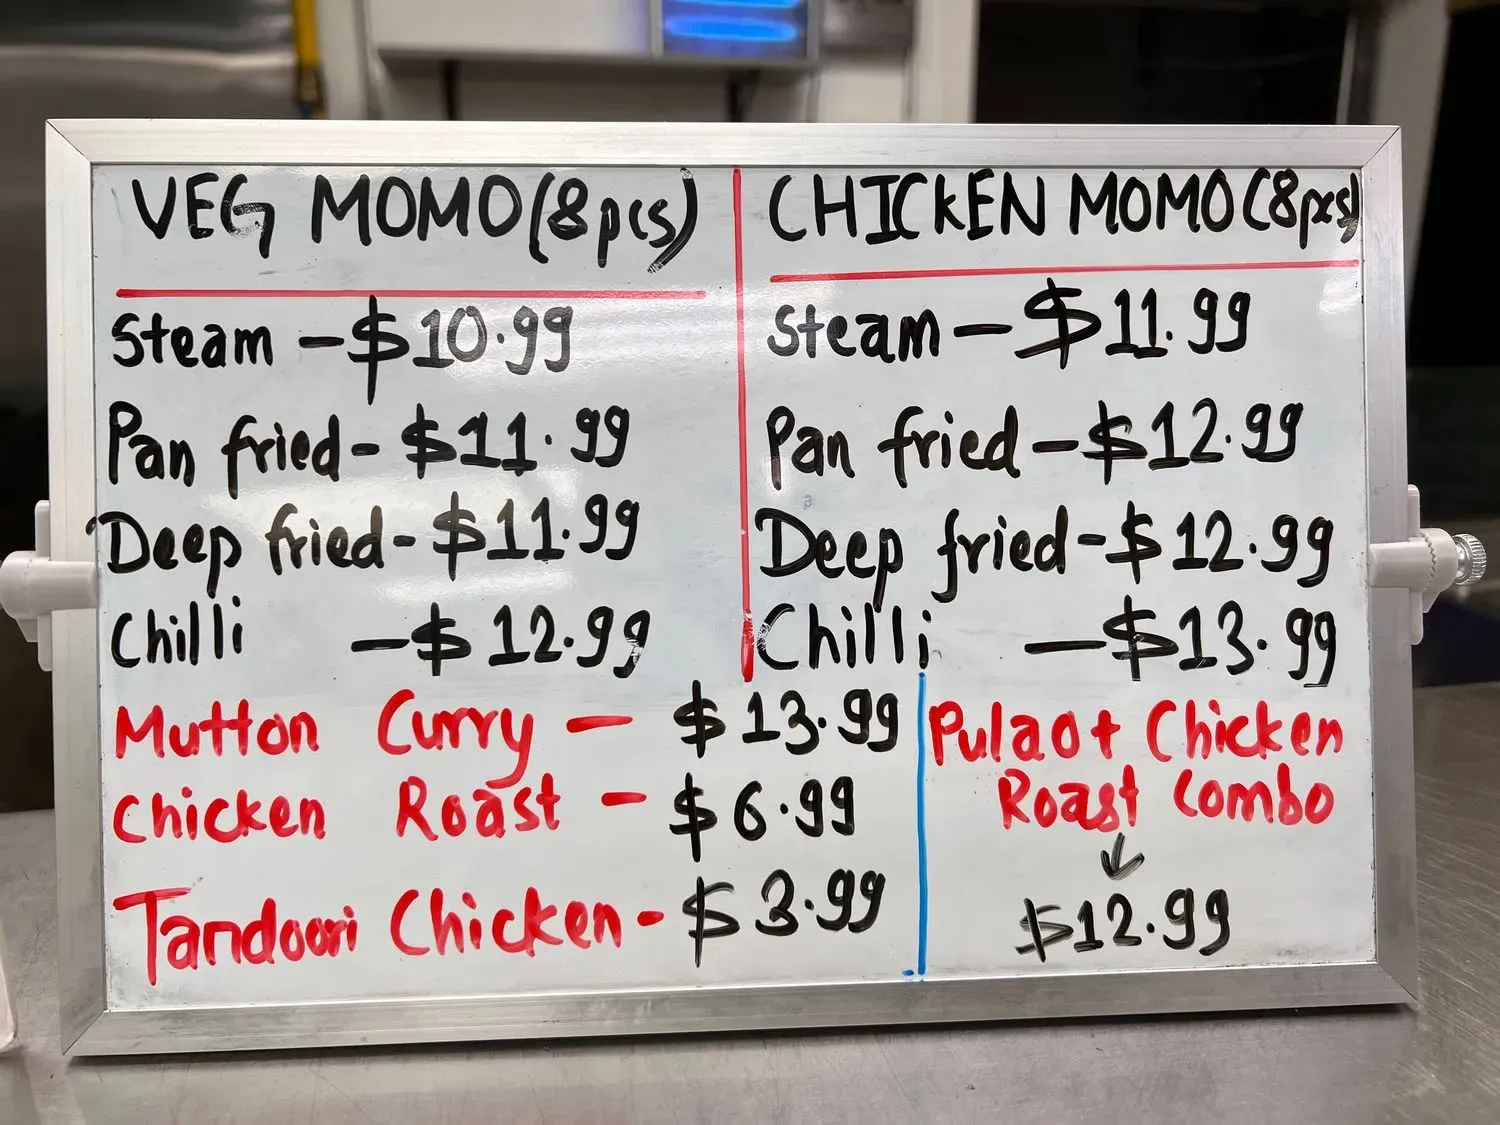 VEG MOMO(8pcs)
Steam - $10.99
Pan fried - $11.99
Deep fried - $11.99
Chilli - $12.99
CHICKEN MOMO(8pcs)
Steam - $11.99
Pan fried - $12.99
Deep fried - $12.99
Chilli - $13.99
Mutton Curry - $13.99
Chicken Roast - $6.99
Tandoori Chicken - $3.99
Pulao + Chicken
Roast Combo
↓
$12.99